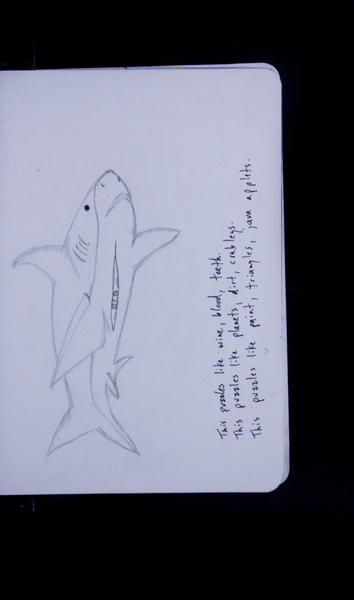 This puzzles like wine, blood, teeth.
This puzzles like planets, dirt, crab legs.
This puzzles like paint, triangles, java applets.